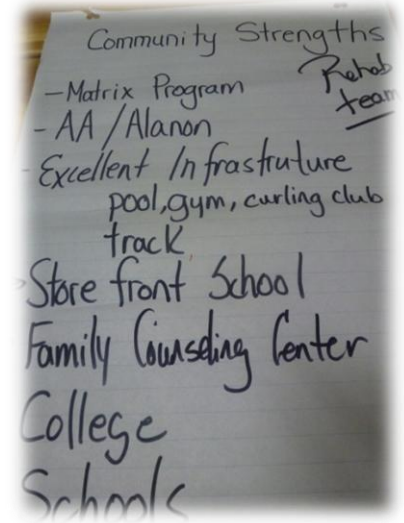 Community Strengths
Rehab
team
- Matrix Program
- AA / Alanon
- Excellent Infrastruture
pool, gym, curling club
track
Store front School
Family Counseling Center
College
Schools